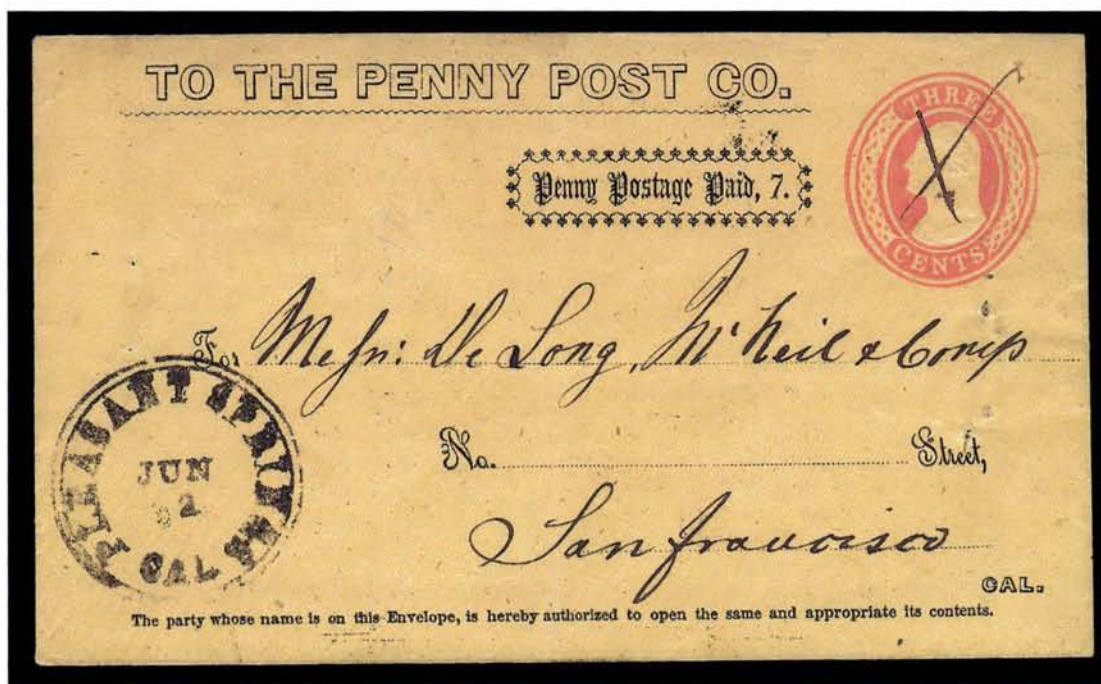 TO THE PENNY POST CO.
THREE
CENTS
Penny Postage Paid, 7.
To, Messrs: De Long, McNeil & Comp
No. Street,
San Francisco
CAL.
PLEASANT SPRINGS
JUN
22
CAL
The party whose name is on this Envelope, is hereby authorized to open the same and appropriate its contents.